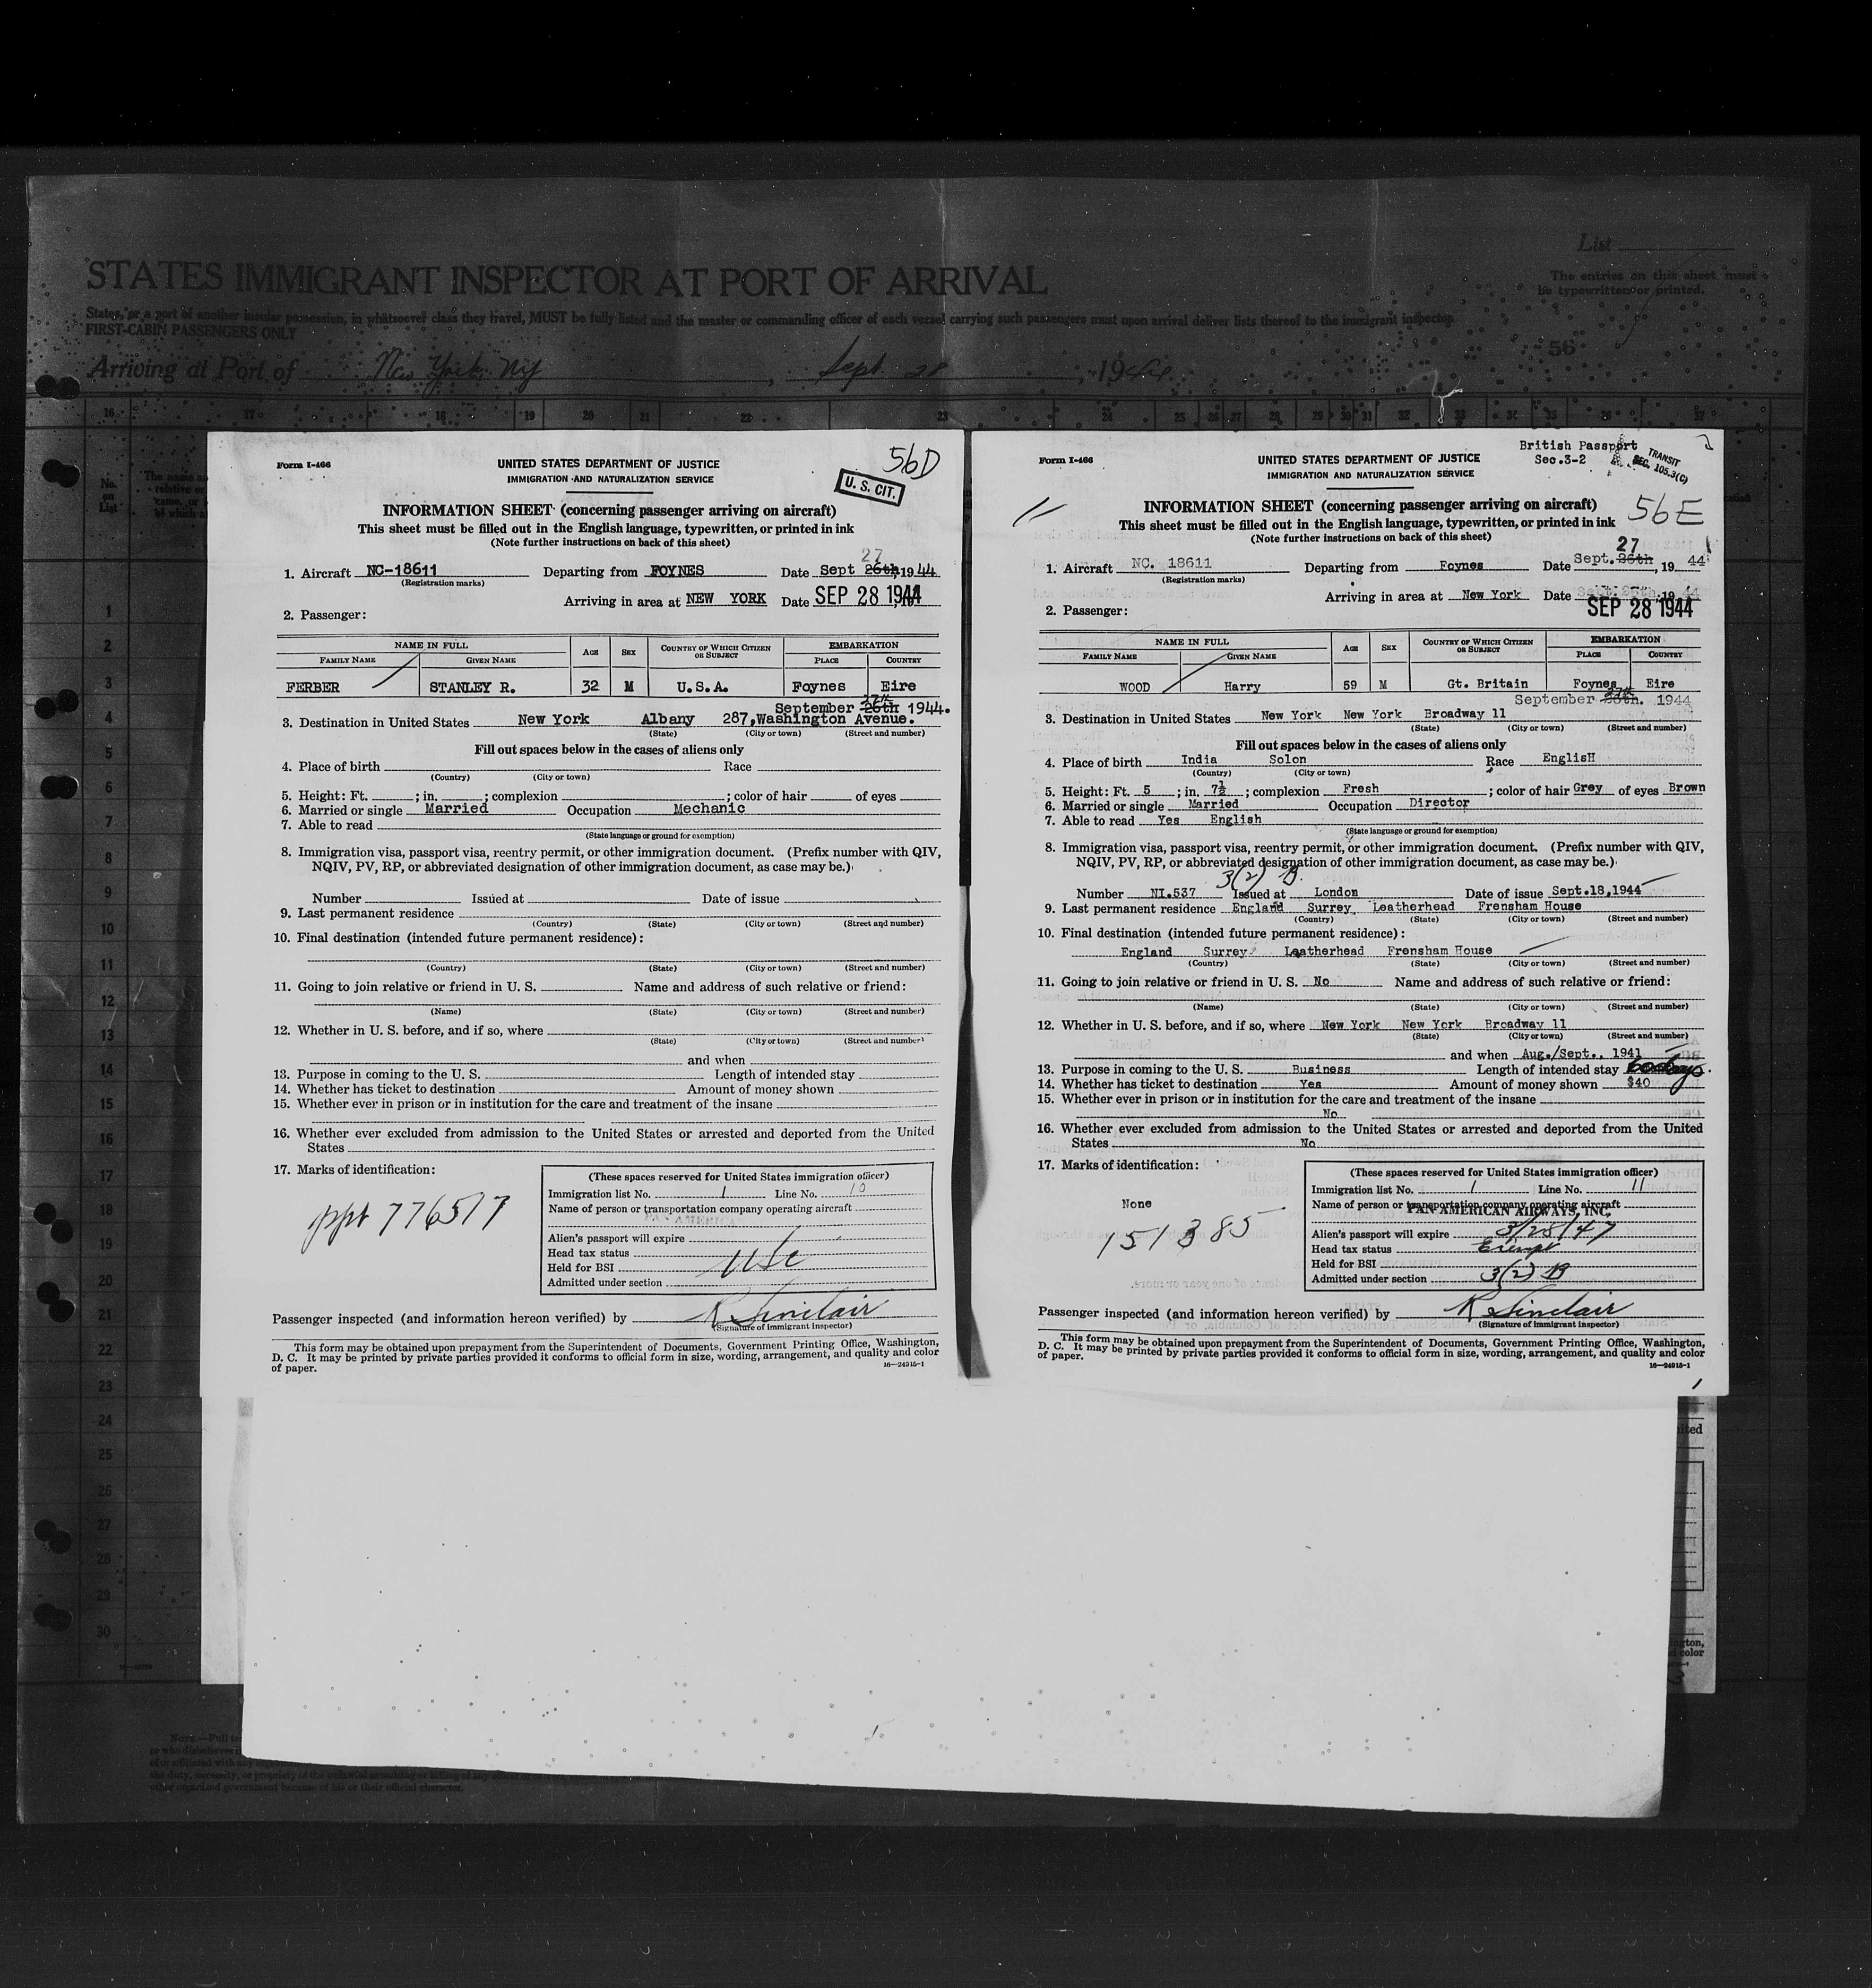 List
STATES IMMIGRANT INSPECTOR AT PORT OF ARRIVAL
The entries on this sheet must be typewritten or printed.
States, or a port of another insular possession, in whatsoever class they travel, MUST be fully listed and the master or commanding officer of each vessel carrying such passengers must upon arrival deliver lists thereof to the immigrant inspector.
FIRST-CABIN PASSENGERS ONLY
56
Arriving at Port of New York, NY, Sept 28, 1944
16 17 18 19 20 21 22 23 24 25 26 27 28 29 30 31 32 33 34 35 36 37
No. on List
1
2
3
4
5
6
7
8
9
10
11
12
13
14
15
16
17
18
19
20
21
22
23
24
25
26
27
28
29
30
56D
Form I-466
UNITED STATES DEPARTMENT OF JUSTICE
IMMIGRATION AND NATURALIZATION SERVICE
U. S. CIT.
INFORMATION SHEET (concerning passenger arriving on aircraft)
This sheet must be filled out in the English language, typewritten, or printed in ink
(Note further instructions on back of this sheet)
27
1. Aircraft NC-18611 Departing from FOYNES Date Sept 26th, 1944
(Registration marks)
Arriving in area at NEW YORK Date SEP 28 1944
2. Passenger:
NAME IN FULL AGE SEX COUNTRY OF WHICH CITIZEN OR SUBJECT EMBARKATION
FAMILY NAME GIVEN NAME PLACE COUNTRY
FERBER STANLEY R. 32 M U.S.A. Foynes Eire
27th
September 26th 1944.
3. Destination in United States New York Albany 287, Washington Avenue.
(State) (City or town) (Street and number)
Fill out spaces below in the cases of aliens only
4. Place of birth Race
(Country) (City or town)
5. Height: Ft. ; in. ; complexion ; color of hair of eyes
6. Married or single Married Occupation Mechanic
7. Able to read
(State language or ground for exemption)
8. Immigration visa, passport visa, reentry permit, or other immigration document. (Prefix number with QIV,
NQIV, PV, RP, or abbreviated designation of other immigration document, as case may be.)
Number Issued at Date of issue
9. Last permanent residence
(Country) (State) (City or town) (Street and number)
10. Final destination (intended future permanent residence):
(Country) (State) (City or town) (Street and number)
11. Going to join relative or friend in U. S. Name and address of such relative or friend:
(Name) (State) (City or town) (Street and number)
12. Whether in U. S. before, and if so, where
(State) (City or town) (Street and number)
and when
13. Purpose in coming to the U. S. Length of intended stay
14. Whether has ticket to destination Amount of money shown
15. Whether ever in prison or in institution for the care and treatment of the insane
16. Whether ever excluded from admission to the United States or arrested and deported from the United
States
17. Marks of identification:
ppt 776517
(These spaces reserved for United States immigration officer)
Immigration list No. 1 Line No. 10
Name of person or transportation company operating aircraft
PAN AMERICAN
Alien's passport will expire
Head tax status
Held for BSI USC
Admitted under section
Passenger inspected (and information hereon verified) by R Sinclair
(Signature of immigrant inspector)
This form may be obtained upon prepayment from the Superintendent of Documents, Government Printing Office, Washington,
D. C. It may be printed by private parties provided it conforms to official form in size, wording, arrangement, and quality and color
of paper. 16—24915-1
British Passport
Sec.3-2
TRANSIT
SEC. 105.3(C)
Form I-466
UNITED STATES DEPARTMENT OF JUSTICE
IMMIGRATION AND NATURALIZATION SERVICE
56E
11
INFORMATION SHEET (concerning passenger arriving on aircraft)
This sheet must be filled out in the English language, typewritten, or printed in ink
(Note further instructions on back of this sheet)
27
1. Aircraft NC. 18611 Departing from Foynes Date Sept. 26th, 1944
(Registration marks)
Arriving in area at New York Date Sept. 27th, 1944
SEP 28 1944
2. Passenger:
NAME IN FULL AGE SEX COUNTRY OF WHICH CITIZEN OR SUBJECT EMBARKATION
FAMILY NAME GIVEN NAME PLACE COUNTRY
WOOD Harry 59 M Gt. Britain Foynes Eire
27th
September 26th. 1944
3. Destination in United States New York New York Broadway 11
(State) (City or town) (Street and number)
Fill out spaces below in the cases of aliens only
4. Place of birth India Solon Race EnglisH
(Country) (City or town)
5. Height: Ft. 5 ; in. 7½ ; complexion Fresh ; color of hair Grey of eyes Brown
6. Married or single Married Occupation Director
7. Able to read Yes English
(State language or ground for exemption)
8. Immigration visa, passport visa, reentry permit, or other immigration document. (Prefix number with QIV,
NQIV, PV, RP, or abbreviated designation of other immigration document, as case may be.)
3(2) B.
Number NI.537 Issued at London Date of issue Sept.18,1944
9. Last permanent residence England Surrey Leatherhead Frensham House
(Country) (State) (City or town) (Street and number)
10. Final destination (intended future permanent residence):
England Surrey Leatherhead Frensham House
(Country) (State) (City or town) (Street and number)
11. Going to join relative or friend in U. S. No Name and address of such relative or friend:
(Name) (State) (City or town) (Street and number)
12. Whether in U. S. before, and if so, where New York New York Broadway 11
(State) (City or town) (Street and number)
and when Aug./Sept., 1941
13. Purpose in coming to the U. S. Business Length of intended stay 60 days.
14. Whether has ticket to destination Yes Amount of money shown $40
15. Whether ever in prison or in institution for the care and treatment of the insane
No
16. Whether ever excluded from admission to the United States or arrested and deported from the United
States No
17. Marks of identification:
None
151385
(These spaces reserved for United States immigration officer)
Immigration list No. 1 Line No. 11
Name of person or transportation company operating aircraft
PAN AMERICAN AIRWAYS, INC.
Alien's passport will expire 3/28/47
Head tax status Exempt
Held for BSI
Admitted under section 3(2) B
Passenger inspected (and information hereon verified) by R Sinclair
(Signature of immigrant inspector)
This form may be obtained upon prepayment from the Superintendent of Documents, Government Printing Office, Washington,
D. C. It may be printed by private parties provided it conforms to official form in size, wording, arrangement, and quality and color
of paper. 16—24915-1